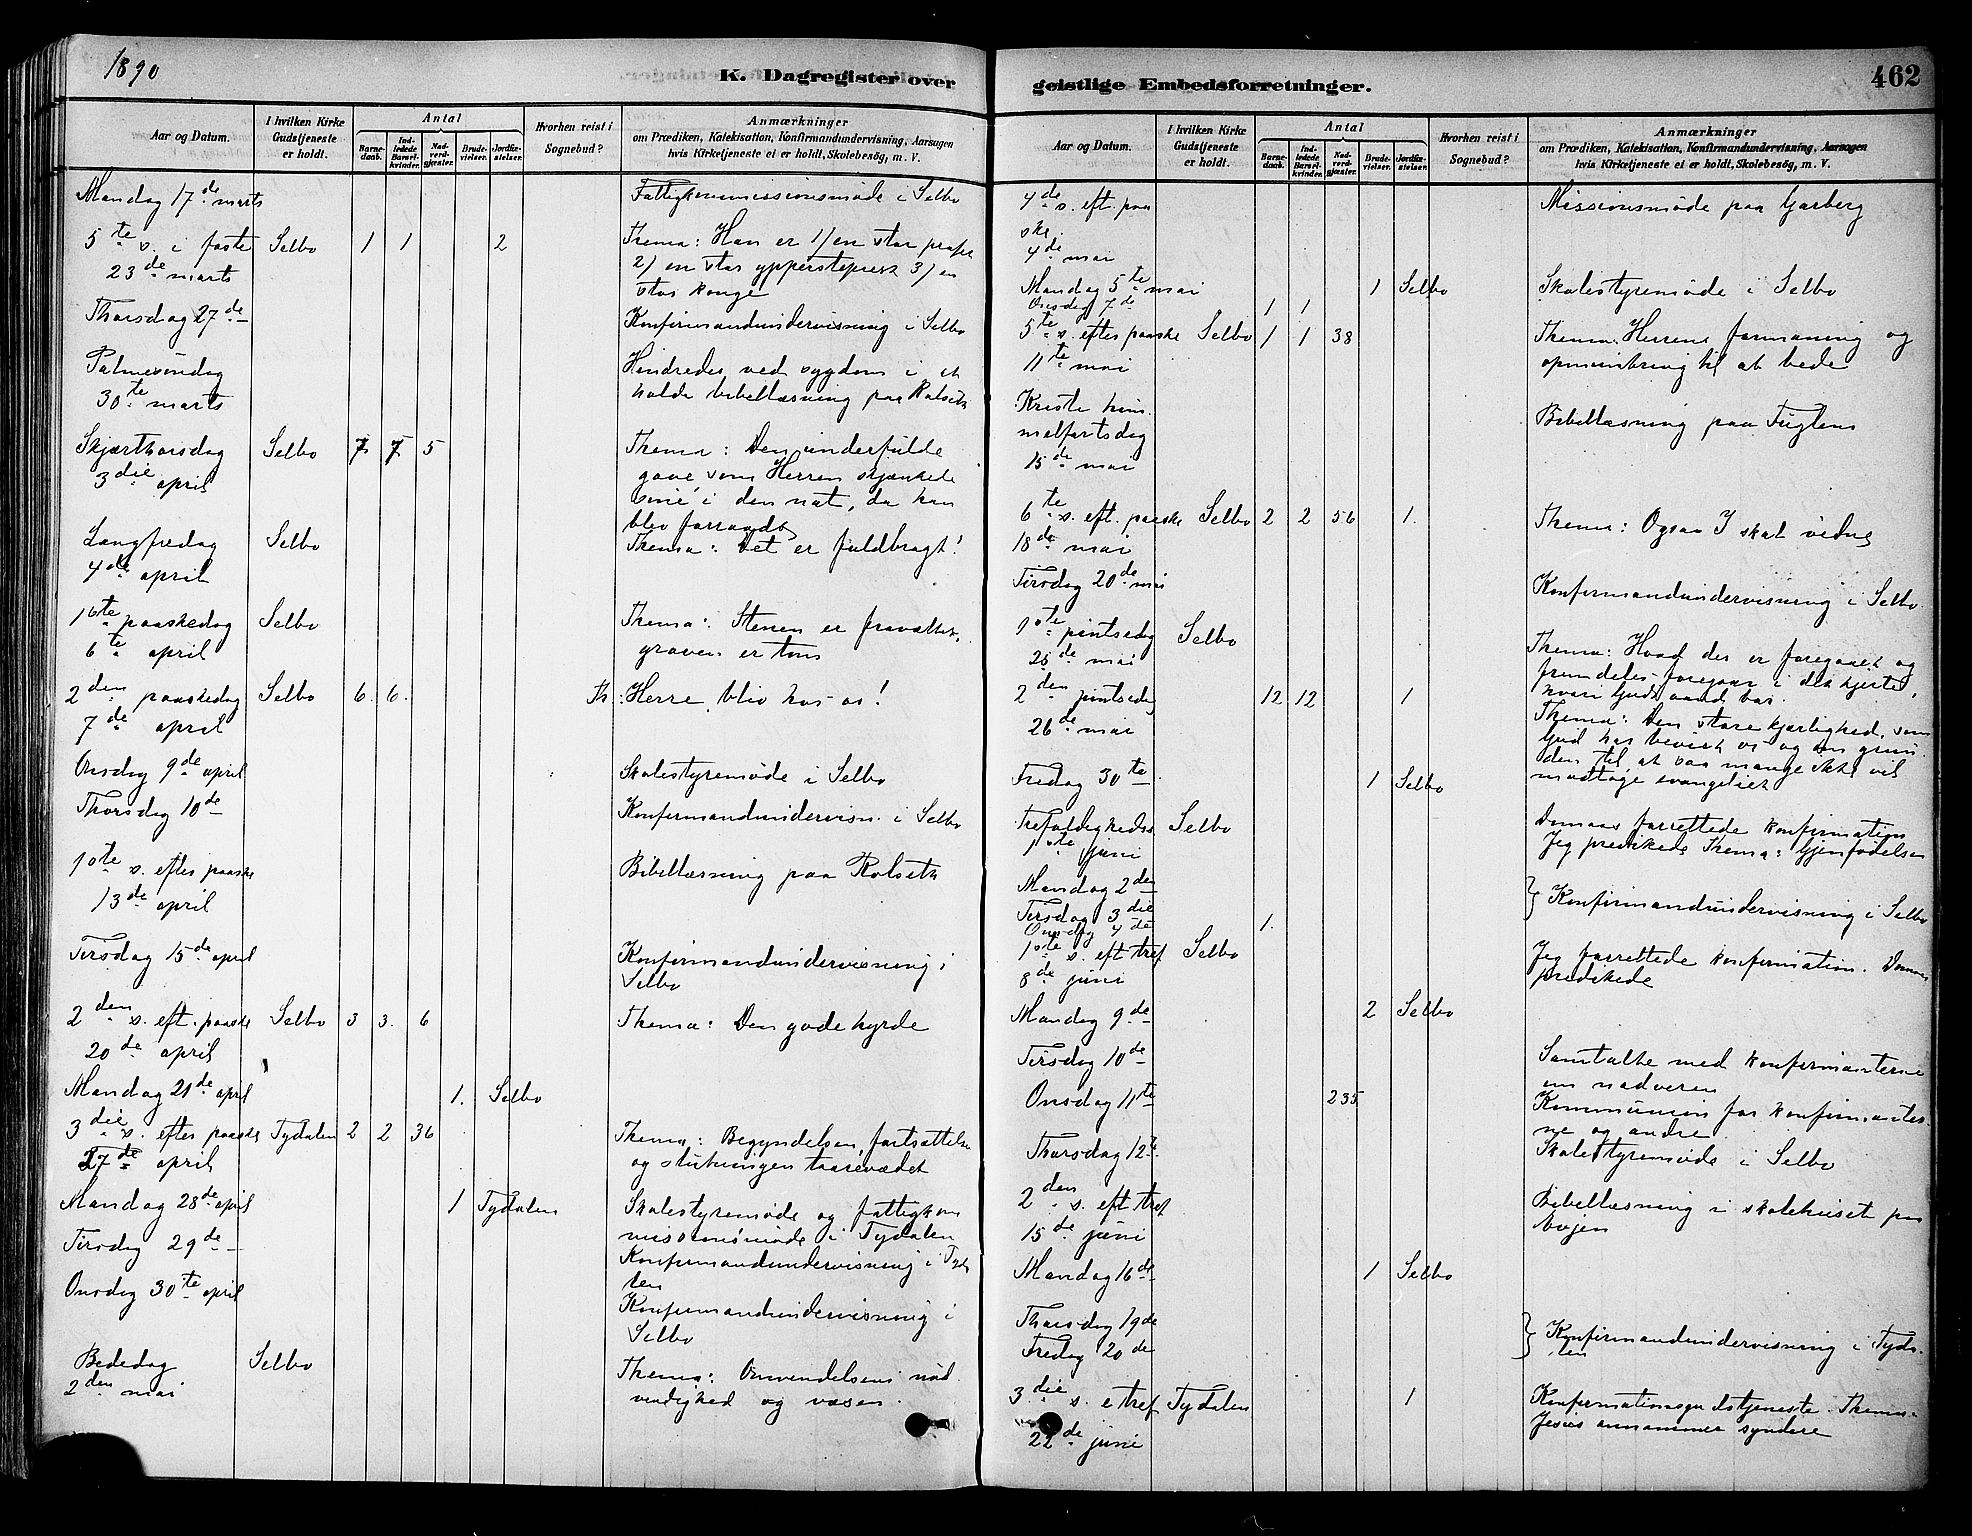 1890
K. Dagregister over
Aar og Datum. I hvilken Kirke Gudstjeneste er holdt. Antal Barnedaab. Indledede Barselkvinder. Nadverdgjæster. Brudevielser. Jordfæstelser. Hvorhen reist i Sognebud? Anmærkninger om Prædiken, Katekisation, Konfirmandundervisning, Aarsagen hvis Kirketjeneste ei er holdt, Skolebesög, m. V.
Mandag 17de marts Fattigkommissionsmøde i Selbo
5te s. i faste Selbo 1 1 2 Thema: Han er 1) en stor profet
23de marts 2) en stor ypperstepræst 3) en
stor konge
Thorsdag 27de Konfirmandundervisning i Selbo
Palmesøndag Hindredes ved sygdom i at
30te marts holde bibellæsning paa Rolseth
Skjærthorsdag Selbo 7 7 5 Thema: Den underfulde
3die april gave som Herren skjænkede
sine i den nat, da han
blev forraadt
Langfredag Selbo Thema: Det er fuldbragt!
4de april
1ste paaskedag Selbo Thema: Stenen er fravæltet,
6te april graven er tom
2den paaskedag Selbo 6. 6. Th: Herre, bliv hos os!
7de april
Onsdag 9de april Skolestyremøde i Selbo
Thorsdag 10de Konfirmandundervisn. i Selbo
1ste s. efter paaske Bibellæsning paa Rolseth
13de april
Tirsdag 15de april Konfirmandundervisning i
Selbo
2den s. eft. paaske Selbo 3 3. 6 Thema: Den gode hyrde
20de april
Mandag 21de april 1. Selbo
3die s. efter paaske Tydalen 2 2 36 Thema: Begyndelsen, fortsættelsen
27de april og slutningen
Mandag 28de april 1 Tydalen Skolestyremøde og fattigkom
missionsmøde i Tydalen
Tirsdag 29de Konfirmandundervisning i Tyda
len
Onsdag 30te april Konfirmandundervisning i
Selbo
Bededag Selbo Thema: Omvendelsens nød
2den mai vendighed og væsen.
geistlige Embedsforretninger.
462
Aar og Datum. I hvilken Kirke Gudstjeneste er holdt. Antal Barnedaab. Indledede Barselkvinder. Nadverdgjæster. Brudevielser. Jordfæstelser. Hvorhen reist i Sognebud? Anmærkninger om Prædiken, Katekisation, Konfirmandundervisning, Aarsagen hvis Kirketjeneste ei er holdt, Skolebesög, m. V.
4de s. eft. paa Missionsmøde paa Garberg
ske
4de mai
Mandag 5te mai 1 Selbo Skolestyremøde i Selbo
Onsdag 7de 1 1
5te s. efter paaske Selbo 1 1 38 Thema: Herrens formaning og
11te mai opmuntring til at bede
Kristi him
melfartsdag Bibellæsning paa Fuglem
15de mai
6te s. eft. paaske Selbo 2 2 56 1. Thema: Ogsaa I skal vidne
18de mai
Tirsdag 20de mai Konfirmandundervisning i Selbo.
1ste pintsedag Selbo Thema: Hvad der er foregaaet og
25de mai fremdeles foregaar i det hjerte,
hvori Guds aand bor.
2den pintsedag 12 12 1 Thema: Den store kjærlighed, som
26de mai Gud har bevist os og om grun
den til at saa mange ikke vil
Fredag 30te 1 Selbo modtage evangeliet
Trefoldigheds Selbo forrettede konfirmation
1ste juni Jeg prædikede Thema: Gjenfødelsen
Mandag 2den
Tirsdag 3die } Konfirmandundervisning i Selbo
Onsdag 4de 1.
1ste s. eft tref Selbo Jeg forrettede konfirmation.
8de juni prædikede
Mandag 9de 2 Selbo
Tirsdag 10de Samtalte med konfirmanterne
om nadveren
Onsdag 11te 235 Kommunion for konfirmanter
ne og andre.
Thorsdag 12te Skolestyremøde i Selbo
2den s. eft tref Bibellæsning i skolehuset paa
15de juni
Mandag 16de 1 Selbo
Thorsdag 19de
Fredag 20de } Konfirmandundervisning i Tyda
len
3die s. e tref Tydalen 1 Konfirmationsgudstjeneste. Thema:
22de juni Jesus annammer syndere